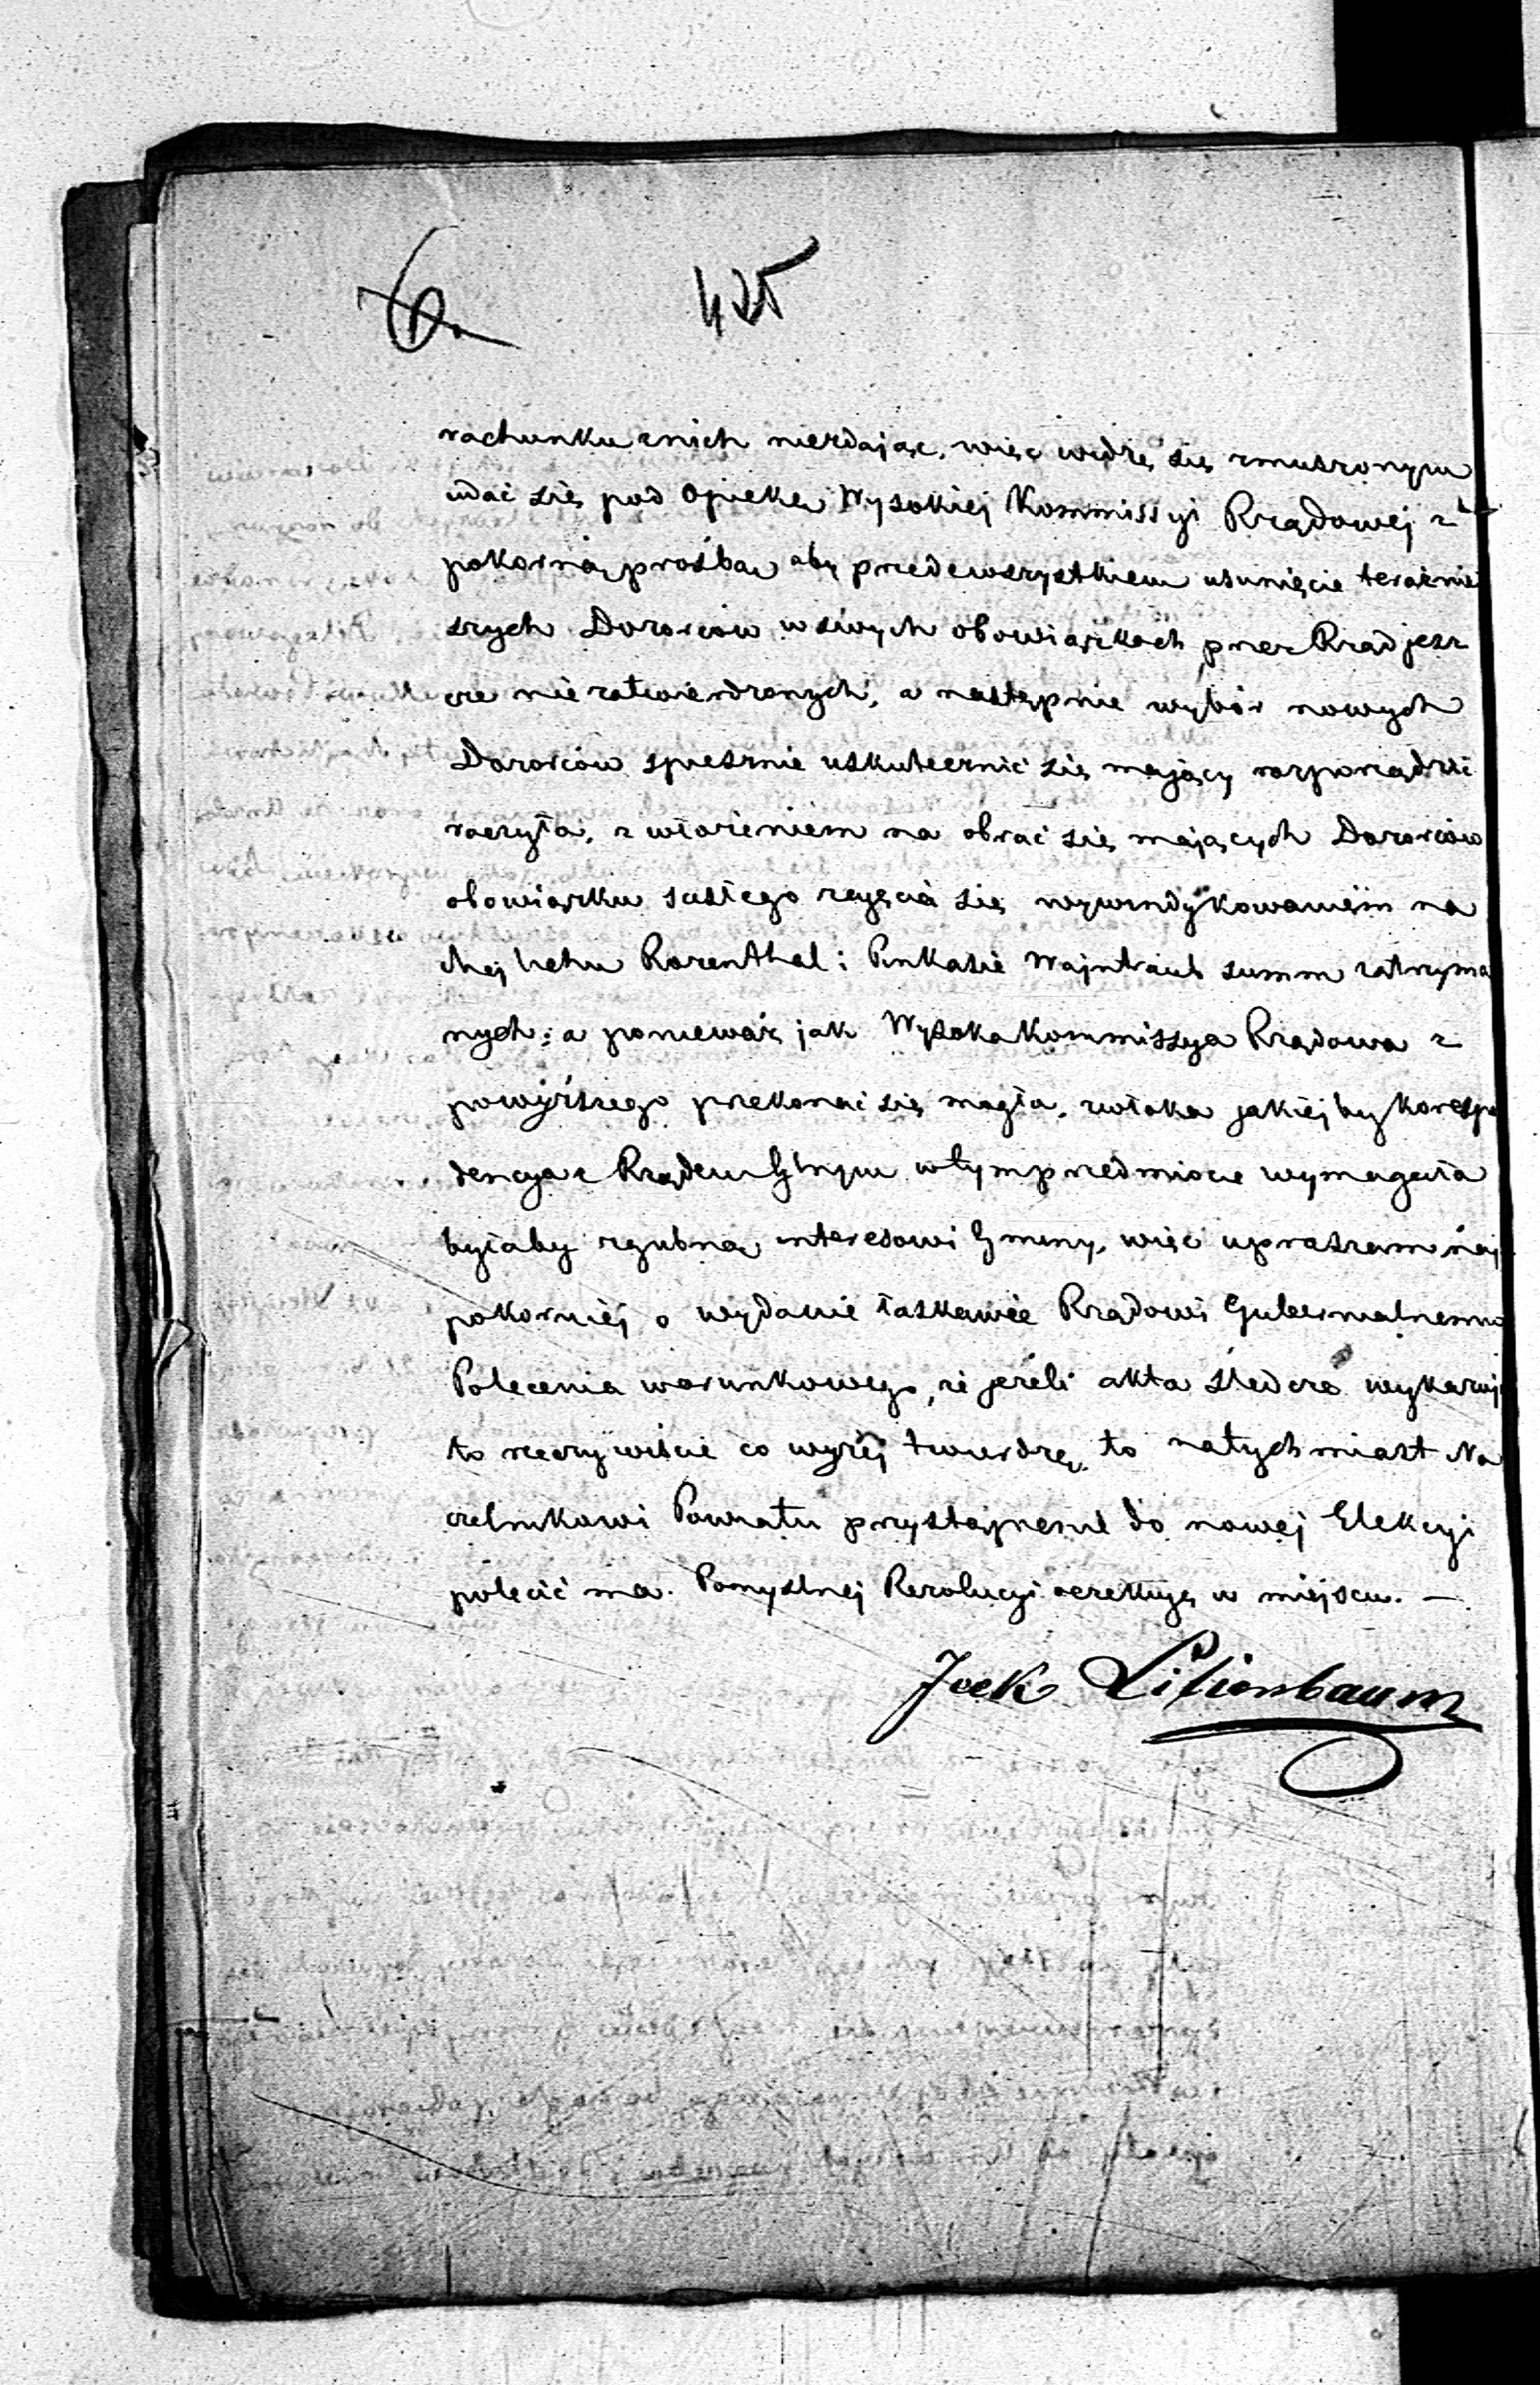 425
rachunku znich niezdając, więc widzę się zmuszonym
udać się pod Opiekę Wysokiej Kommissyi Rządowej z
pokorną prośbą aby przedewszystkiem usunięcie teraźniej
szych Dozorców w swych obowiązkach przez Rząd jesz
cze nie zatwierdzonych, a następnie wybór nowych
Dozorców spiesznie uskutecznić się mający rozporządzić
raczyła, z włożeniem na obrać się mających Dozorców
obowiązku ścisłego zajęcia się wywindykowaniem na
Rozenthal i Pinkasie Wajntraub summ zatrzyma
nych; a ponieważ jak Wysoka Kommissya Rządowa z
powyższego przekonać się mogła, zwłoka jakiejby korespo
dencya z Rządem Gbnym w tym przedmiocie wymagała
byłaby zgubną interesowi Gminy, więc upraszam naj
pokorniej o wydanie łaskawie Rządowi Gubernialnemu
Polecenia warunkowego, że jeżeli akta śledcze wykażą
to rzeczywiście co wyżej twierdzę, to natychmiast Na
czelnikowi Powiatu przystąpienie do nowej Elekcyi
polecić ma. Pomyślnej Rezolucyi oczekuję w miejscu. —
Jcek Lilienbaum